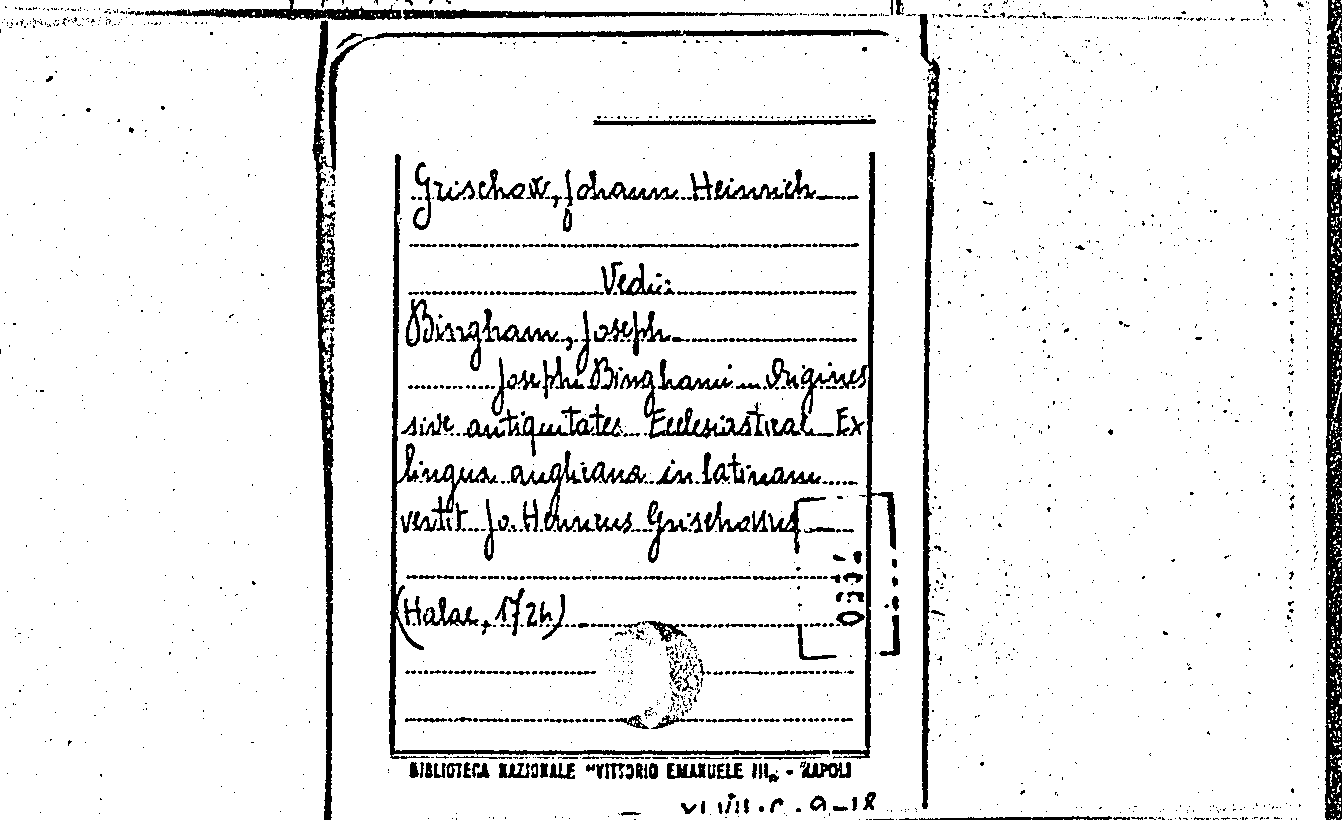 Grischow, Johann Heinrich
Vedi:
Bingham, Joseph
Josephi Binghami Origines
sive antiquitates Ecclesiasticae Ex
lingua anglicana in latinam
vertit Jo. Henricus Grischovius
(Halae, 1724)
BIBLIOTECA NAZIONALE "VITTORIO EMANUELE III" - NAPOLI